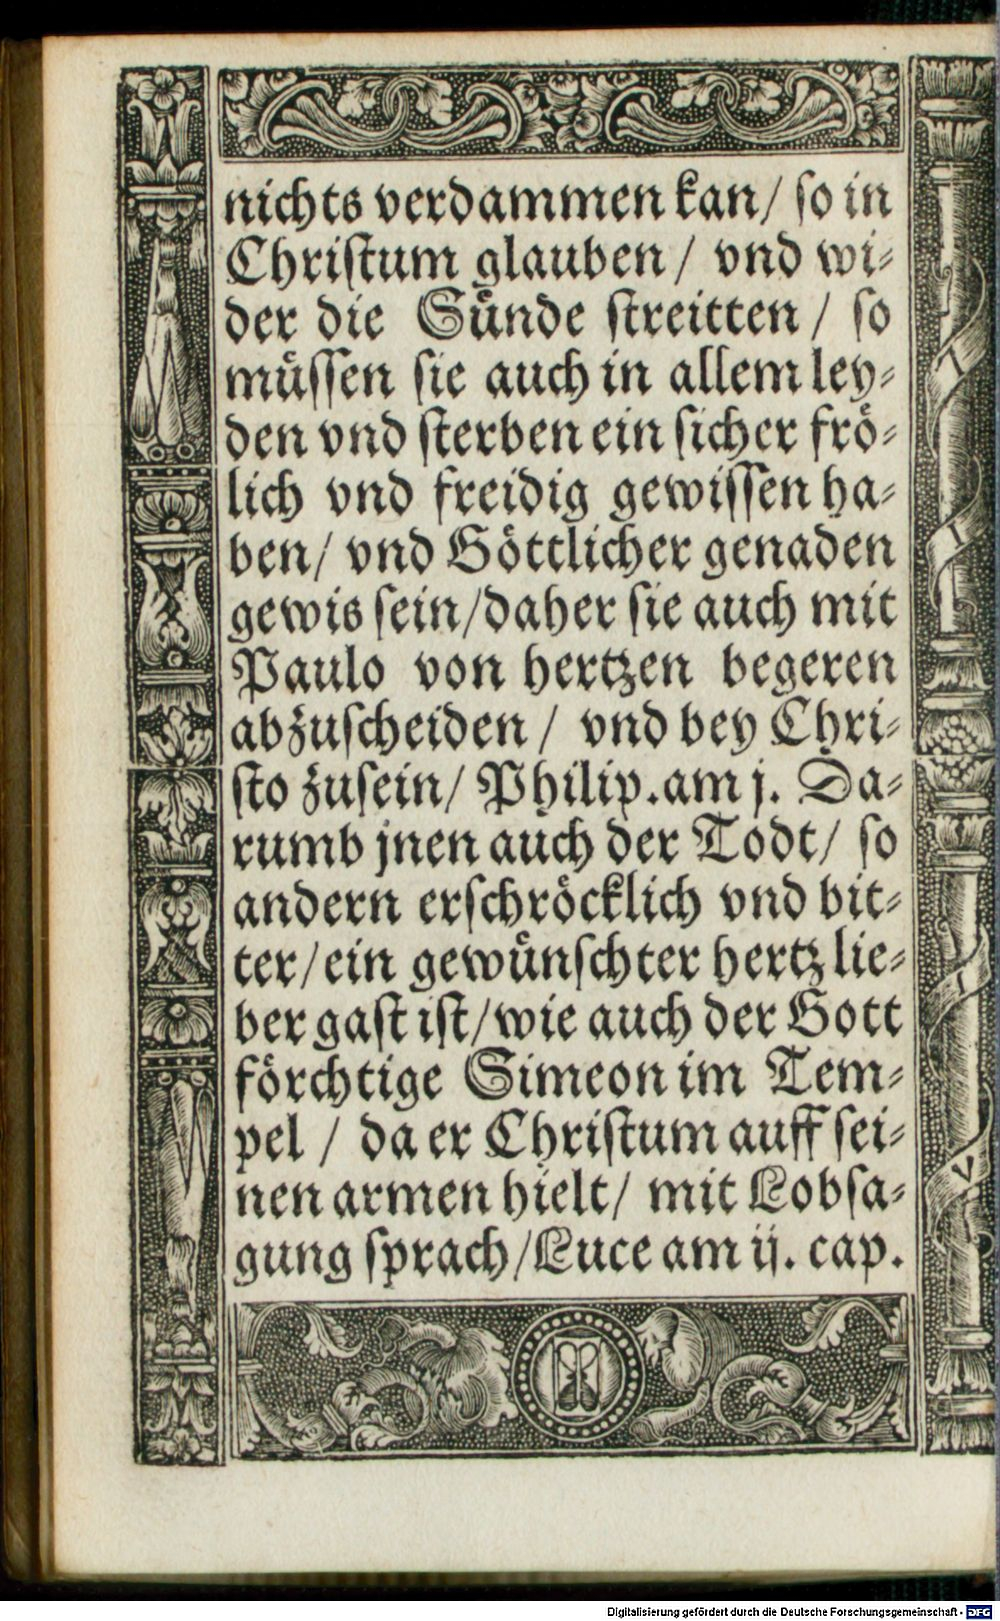 nichts verdammen kan/ so in
Christum glauben / vnd wi-
der die Sünde streitten / so
müssen sie auch in allem ley-
den vnd sterben ein sicher frö-
lich vnd freidig gewissen ha-
ben/ vnd Göttlicher genaden
gewis sein/daher sie auch mit
Paulo von hertzen begeren
abzuscheiden / vnd bey Chri-
sto zusein/ Philip.am j. Da-
rumb jnen auch der Todt/ so
andern erschröcklich vnd bit-
ter/ein gewünschter hertz lie-
ber gast ist/wie auch der Gott
förchtige Simeon im Tem-
pel / da er Christum auff sei-
nen armen hielt/ mit Lobsa-
gung sprach/Luce am ij. cap.
Digitalisierung gefördert durch die Deutsche Forschungsgemeinschaft - DFG